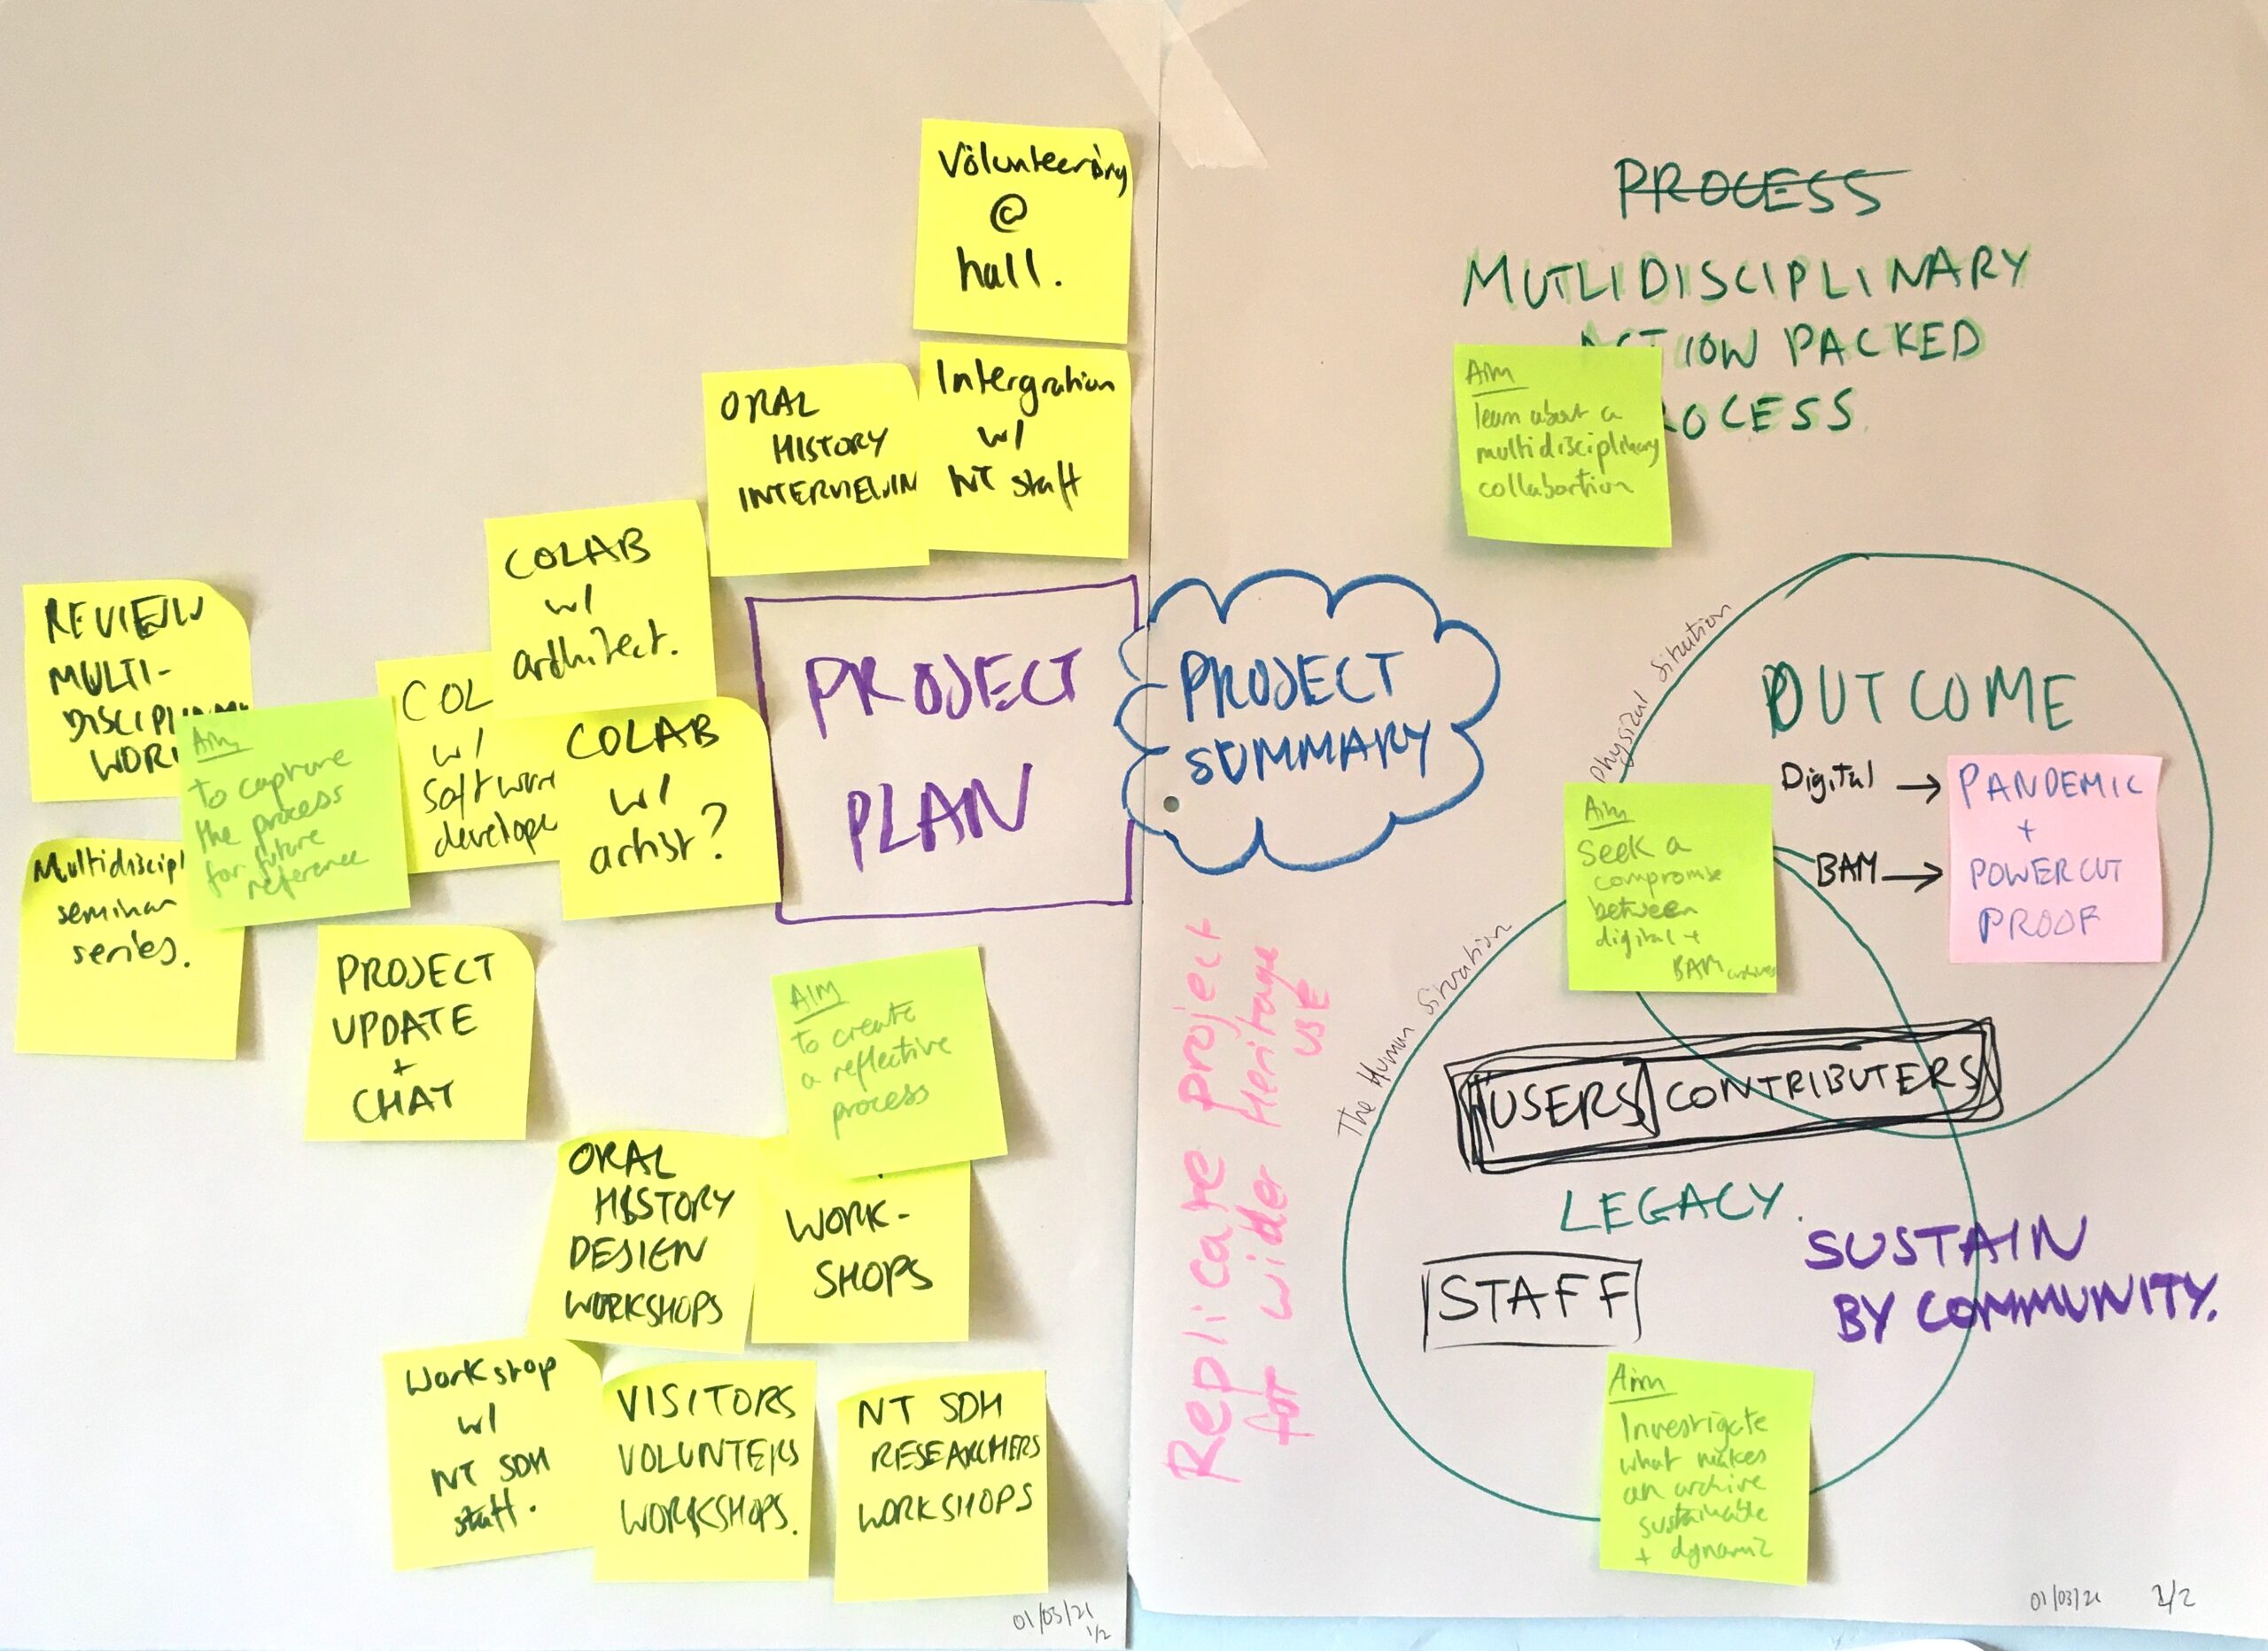 Volunteering
@
hall.
ORAL
HISTORY
INTERVIEWIN
Intergration
w/
NT staff
COLAB
w/
architect.
REVIEW
MULTI-
DISCIPLINARY
WORK
COL
w/
Software
develope
COLAB
w/
artist?
Aim
to capture
the process
for future
reference
Multidiscipl
seminar
series.
PROJECT
UPDATE
+
CHAT
PROJECT
PLAN
AIM
to create
a reflective
process
ORAL
HISTORY
DESIGN
WORKSHOPS
WORK-
SHOPS
Workshop
w/
NT SDH
staff.
VISITORS
VOLUNTERS
WORKSHOPS.
NT SDH
RESEARCHERS
WORKSHOPS
01/03/21
1/2
PROJECT
SUMMARY
PROCESS
MUTLIDISCIPLINARY
ACTION PACKED
ROCESS.
Aim
learn about a
multidisciplinary
collabortion
Physical Situation
OUTCOME
Digital →
BAM →
PANDEMIC
+
POWERCUT
PROOF
Aim
Seek a
compromise
between
digital +
BAM archives
The Human Situation
USERS CONTRIBUTERS
LEGACY.
STAFF
SUSTAIN
BY COMMUNITY.
Aim
Investigate
what makes
an archive
sustainable
+ dynamic
Replicate project
for wider Heritage
USE
01/03/21 1/2